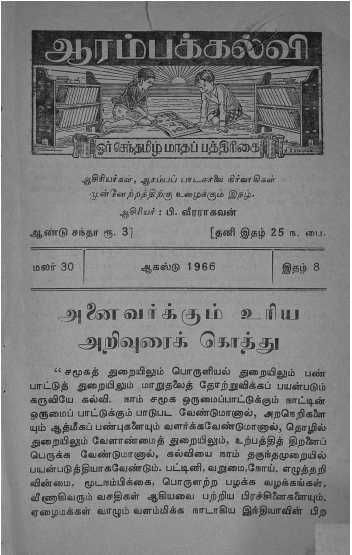 ஆரம்பக்கல்வி
ஓர் செந்தமிழ் மாதப் பத்திரிகை
ஆசிரியர்கள், ஆரம்பப் பாடசாலை நிர்வாகிகள்
முன்னேற்றத்திற்கு உழைக்கும் இதழ்.
ஆசிரியர் : பி. வீரராகவன்
ஆண்டு சந்தா ரூ. 3] [தனி இதழ் 25 ந. பை.
மலர் 30 ஆகஸ்டு 1966 இதழ் 8
அனைவர்க்கும் உரிய
அறிவுரைக் கொத்து
“ சமூகத் துறையிலும் பொருளியல் துறையிலும் பண்
பாட்டுத் துறையிலும் மாறுதலைத் தோற்றுவிக்கப் பயன்படும்
கருவியே கல்வி. நாம் சமூக ஒருமைப்பாட்டுக்கும் நாட்டின்
ஒருமைப் பாட்டுக்கும் பாடுபட வேண்டுமானால், அறநெறிகளை
யும் ஆத்மீகப் பண்புகளையும் வளர்க்கவேண்டுமானால், தொழில்
துறையிலும் வேளாண்மைத் துறையிலும், உற்பத்தித் திறனைப்
பெருக்க வேண்டுமானால், கல்வியை நாம் தகுந்தமுறையில்
பயன்படுத்தியாகவேண்டும். பட்டினி, வறுமை, நோய், எழுத்தறி
வின்மை, மூடநம்பிக்கை, பொருளற்ற பழக்க வழக்கங்கள்,
வீணாகிவரும் வசதிகள் ஆகியவை பற்றிய பிரச்சினைகளையும்,
ஏழைமக்கள் வாழும் வளம்மிக்க நாடாகிய இந்தியாவின் பிற